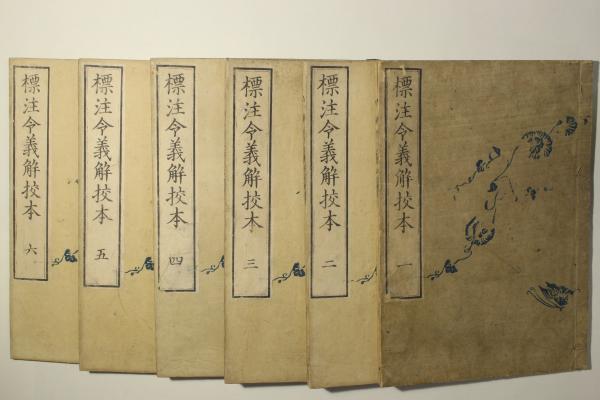 標注令義解挍本 一
標注令義解挍本 二
標注令義解挍本 三
標注令義解挍本 四
標注令義解挍本 五
標注令義解挍本 六